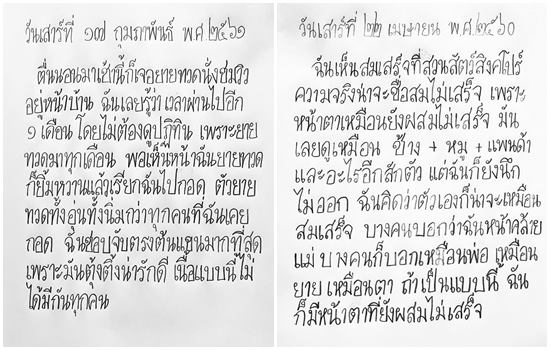 วันเสาร์ที่ ๑๗ กุมภาพันธ์ พ.ศ.๒๕๖๑
ตื่นนอนมาเช้านี้ก็เจอยายทวดนั่งชมวิว
อยู่หน้าบ้าน ฉันเลยรู้ว่า เวลาผ่านไปอีก
๑ เดือน โดยไม่ต้องดูปฏิทิน เพราะยาย
ทวดมาทุกเดือน พอเห็นหน้าฉันยายทวด
ก็ยิ้มหวานแล้วเรียกฉันไปกอด ตัวยาย
ทวดทั้งอุ่นทั้งนิ่มกว่าทุกคนที่ฉันเคย
กอด ฉันชอบจับตรงต้นแขนมากที่สุด
เพราะมันตุ้งติ้งน่ารักดี เนื้อแบบนี้ไม่
ได้มีกันทุกคน
วันเสาร์ที่ ๒๒ เมษายน พ.ศ.๒๕๖๐
ฉันเห็นสมเสร็จที่สวนสัตว์สิงคโปร์
ความจริงน่าจะชื่อสมไม่เสร็จ เพราะ
หน้าตาเหมือนยังผสมไม่เสร็จ มัน
เลยดูเหมือน ช้าง + หมู + แพนด้า
และอะไรอีกสักตัว แต่ฉันก็ยังนึก
ไม่ออก ฉันคิดว่าตัวเองก็น่าจะเหมือน
สมเสร็จ บางคนบอกว่าฉันหน้าคล้าย
แม่ บางคนก็บอกเหมือนพ่อ เหมือน
ยาย เหมือนตา ถ้าเป็นแบบนี้ ฉัน
ก็มีหน้าตาที่ยังผสมไม่เสร็จ